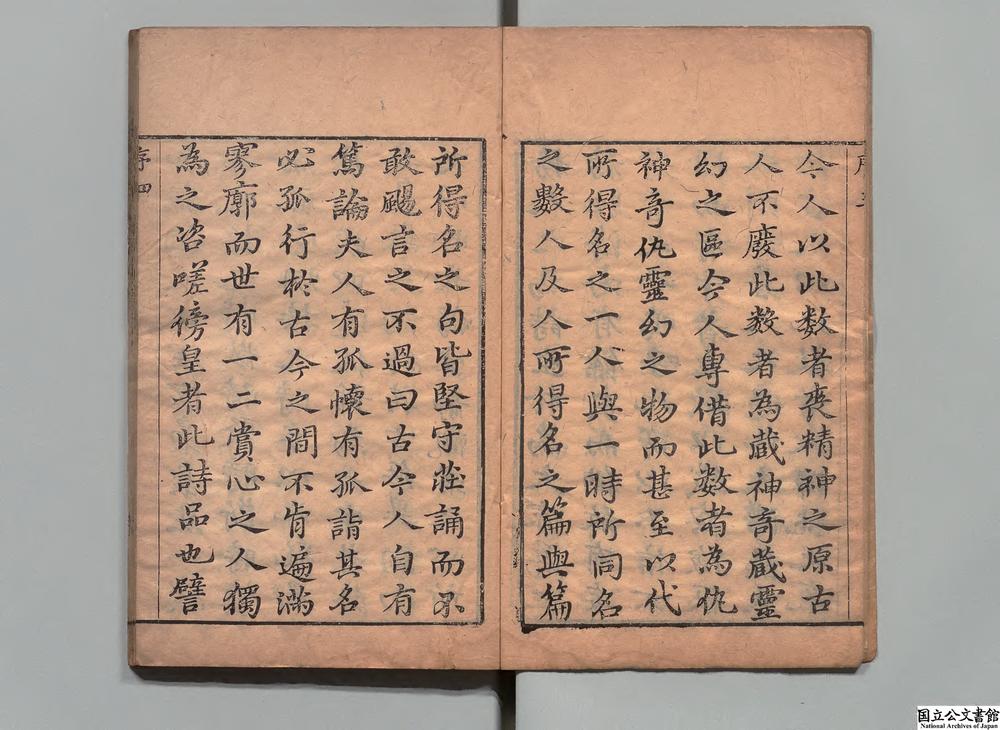 今人以此数者喪精神之原古
人不廢此数者為蔵神竒蔵靈
幻之區今人專借此数者為仇
神竒仇靈幻之物而甚至以代
所得名之一人與一時所同名
之數人及人所得名之篇與篇
所得名之句皆堅守莊誦而不
敢颺言之不過曰古今人自有
篤論夫人有孤懐有孤詣其名
必孤行於古今之間不肯遍滿
寥廓而世有一二賞心之人獨
為之咨嗟徬皇者此詩品也譬
序四
国立公文書館
National Archives of Japan